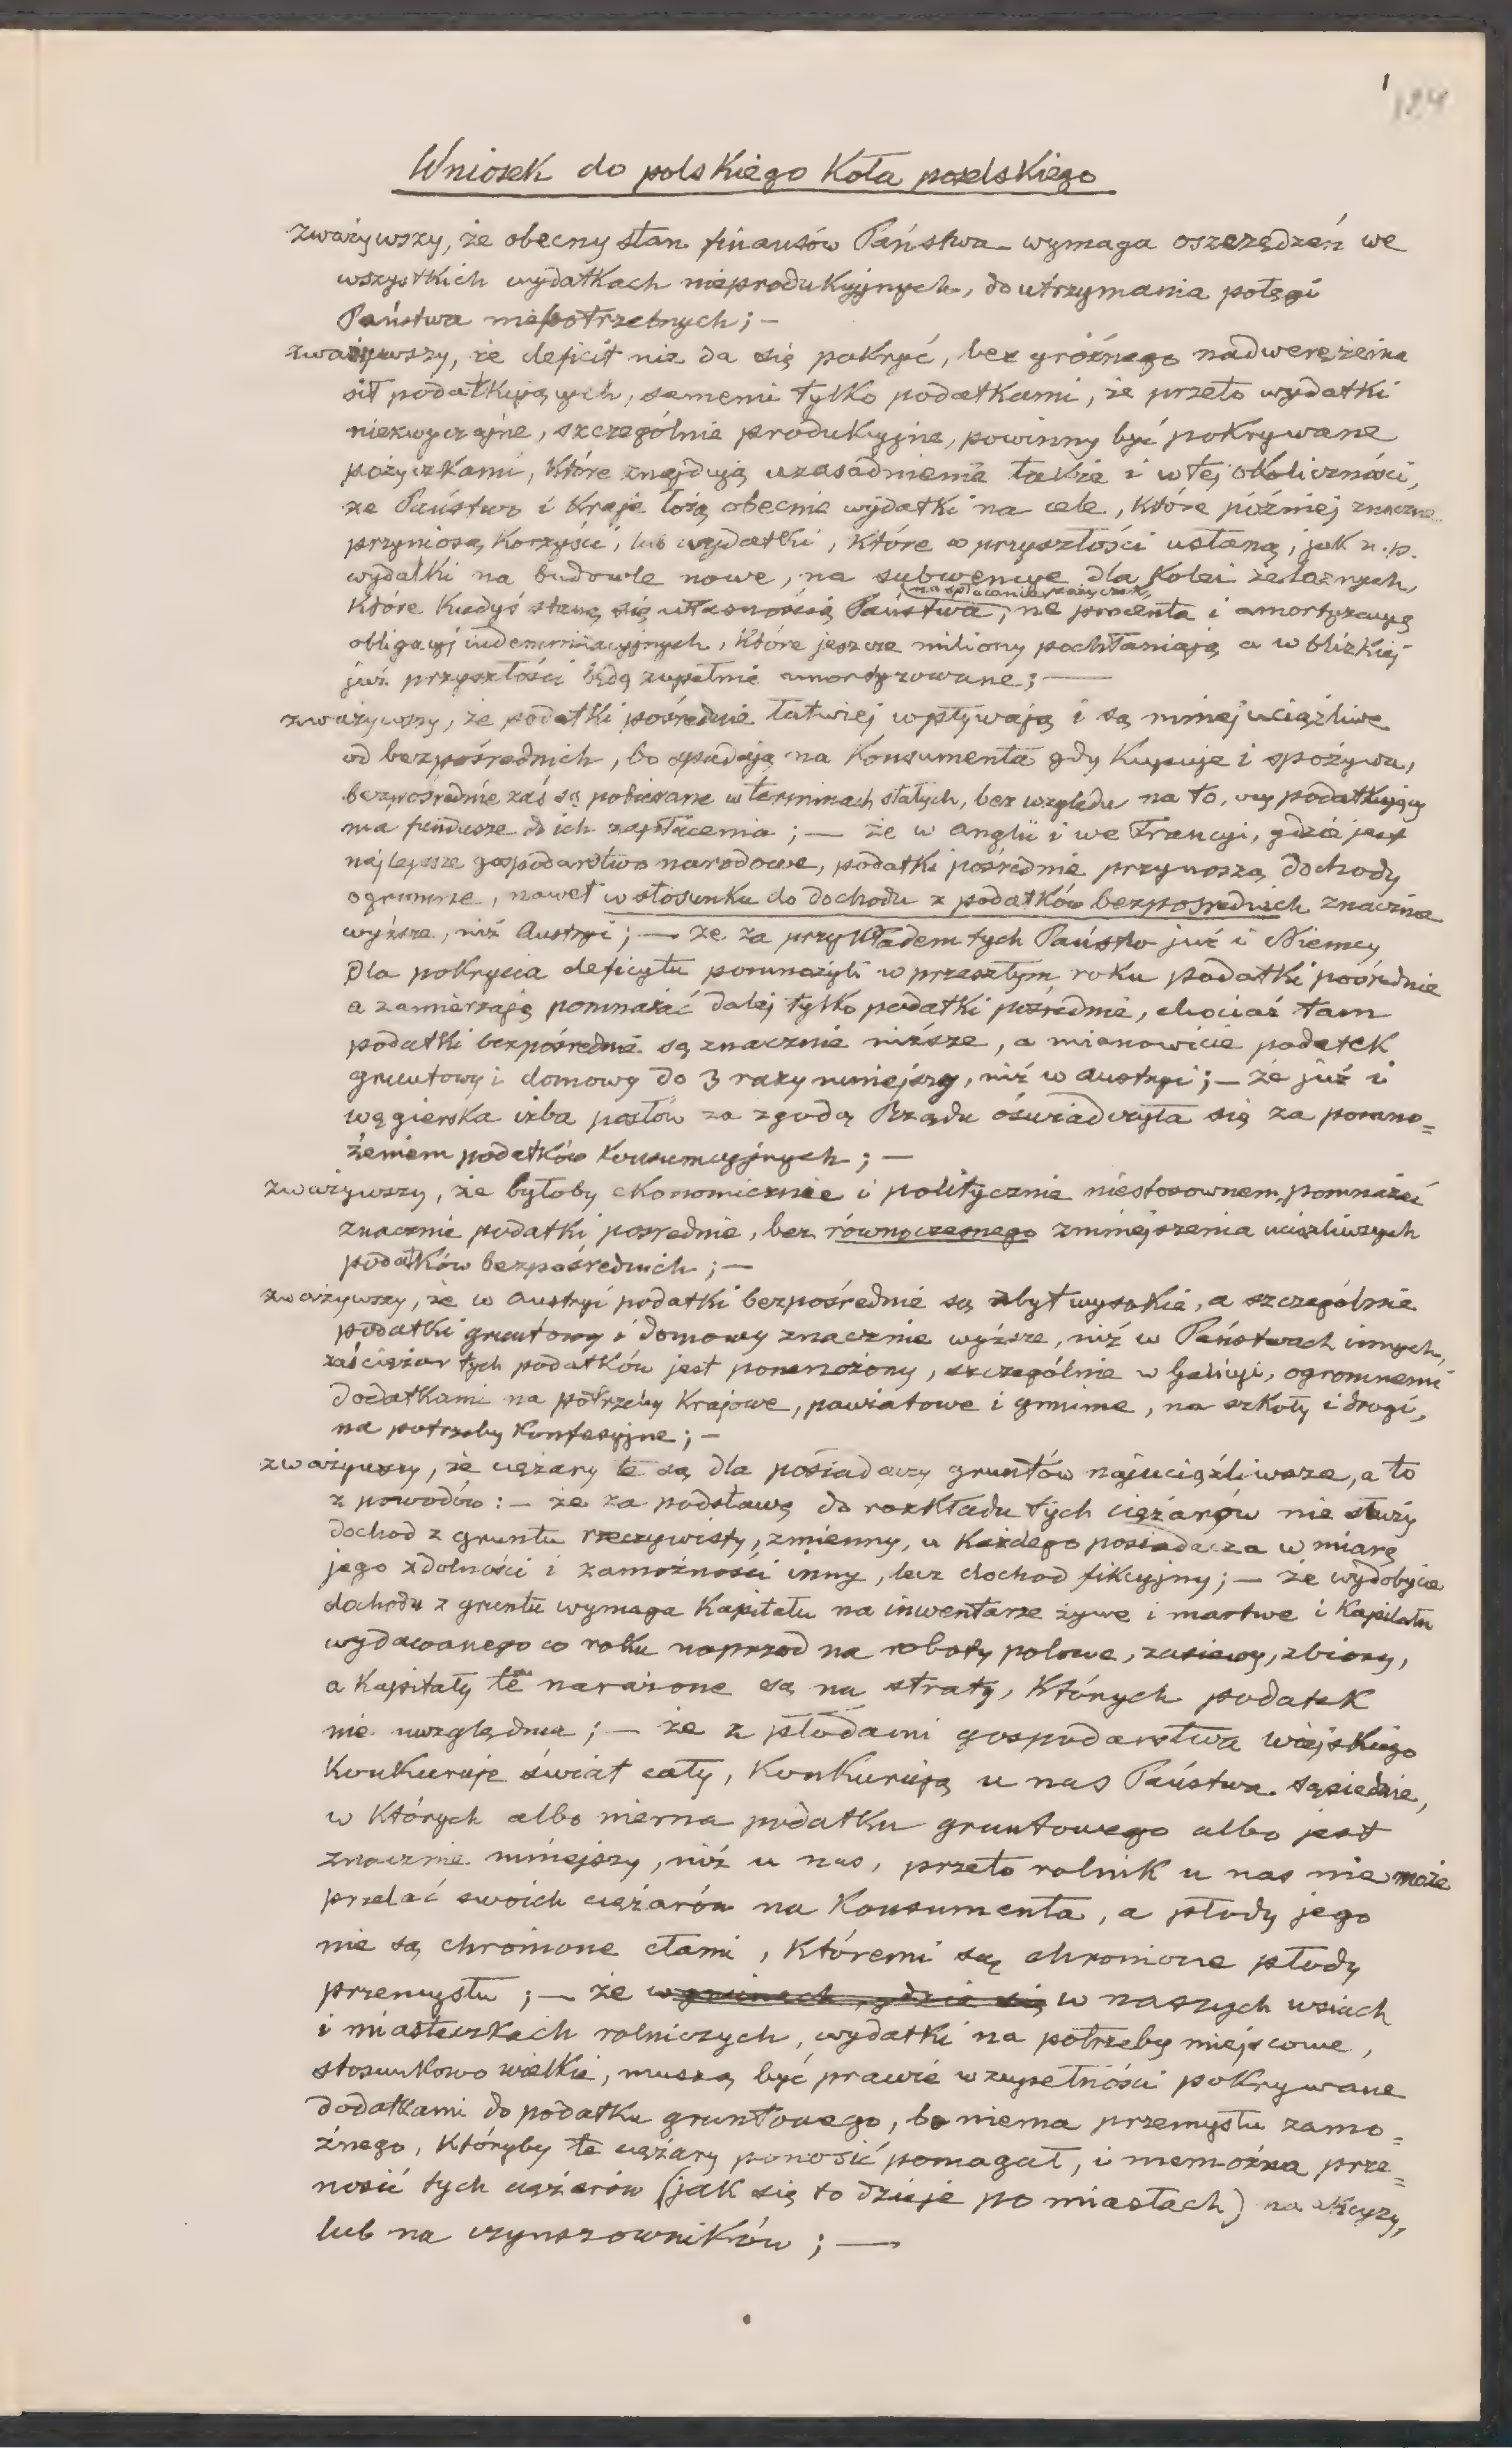 1
184
Wniosek do polskiego Koła poselskiego
zważywszy, że obecny stan finansów Państwa wymaga oszczędzeń we
wszystkich wydatkach nieprodukcyjnych, do utrzymania potęgi
Państwa niepotrzebnych; —
zważywszy, że deficit nie da się pokryć, bez groźnego nadwerężenia
sił podatkujących, samemi tylko podatkami, że przeto wydatki
niezwyczajne, szczególnie produkcyjne, powinny być pokrywane
pożyczkami, które znajdują uzasadnienie także i w tej okoliczności,
że Państwo i Kraje łożą obecnie wydatki na cele, które później znaczne
przyniosą korzyści, lub wydatki, które w przyszłości ustaną, jak n.p.
wydatki na budowle nowe, na subwencye dla Kolei żelaznych,
(na spłacenie pożyczek,
które kiedyś staną się własnością Państwa, na procenta i amortyzacyą
obligacyj indemnizacyjnych, które jeszcze miliony pochłaniają a w blizkiej
już przyszłości będą zupełnie amortyzowane; —
zważywszy, że podatki pośrednie łatwiej wpływają i są mniej uciążliwe
od bezpośrednich, bo spadają na Konsumenta gdy Kupuje i spożywa,
bezpośrednie zaś są pobierane w terminach stałych, bez względu na to, czy podatkujący
ma fundusze do ich zapłacenia; — że w Anglii i we Francyi, gdzie jest
najlepsze gospodarstwo narodowe, podatki pośrednie przynoszą dochody
ogromne, nawet w stosunku do dochodu z podatków bezpośrednich znacznie
wyższe, niż Austryi; — że za przykładem tych Państw już i Niemcy
dla pokrycia deficytu pomnożyli w przeszłym roku podatki pośrednie
a zamierzają pomnażać dalej tylko podatki pośrednie, chociaż tam
podatki bezpośrednie są znacznie niższe, a mianowicie podatek
gruntowy i domowy do 3 razy mniejszy, niż w Austryi; — że już i
węgierska izba posłów za zgodą Rządu oświadczyła się za pomno=
żeniem podatków konsumcyjnych; —
zważywszy, że byłoby ekonomicznie i politycznie niestosownem, pomnażać
znacznie podatki pośrednie, bez równoczesnego zmniejszenia uciążliwszych
podatków bezpośrednich; —
zważywszy, że w Austryi podatki bezpośrednie są zbyt wysokie, a szczególnie
podatki gruntowy i domowy znacznie wyższe, niż w Państwach innych,
zaś ciężar tych podatków jest pomnożony, szczególnie w Galicyi, ogromnemi
dodatkami na potrzeby Krajowe, powiatowe i gminne, na szkoły i drogi,
na potrzeby konfesyjne; —
zważywszy, że ciężary te są dla posiadaczy gruntów najuciążliwsze, a to
z powodów: — że za podstawę do rozkładu tych ciężarów nie służy
dochod z gruntu rzeczywisty, zmienny, u Każdego posiadacza w miarę
jego zdolności i zamożności inny, lecz dochod fikcyjny; — że wydobycie
dochodu z gruntu wymaga Kapitału na inwentarze żywe i martwe i Kapitału
wydawanego co roku naprzod na roboty polowe, zasiewy, zbiory,
a Kapitały te narażone są na straty, Których podatek
nie uwzględnia; — że z płodami gospodarstwa wiejskiego
Konkuruje świat cały, Konkurują u nas Państwa sąsiednie,
w Których albo niema podatku gruntowego albo jest
znacznie mniejszy, niż u nas, przeto rolnik u nas nie może
przelać swoich ciężarów na Konsumenta, a płody jego
nie są chronione cłami, Któremi są chronione płody
przemysłu; — że w gminach, gdzie są w naszych wsiach
i miasteczkach rolniczych, wydatki na potrzeby miejscowe,
stosunkowo wielkie, muszą być prawie w zupełności pokrywane
dodatkami do podatku gruntowego, bo niema przemysłu zamo=
żnego, Któryby te ciężary ponosić pomagał, i niemożna prze=
nosić tych ciężarów (jak się to dzieje po miastach) na akcyzy,
lub na czynszowników; —